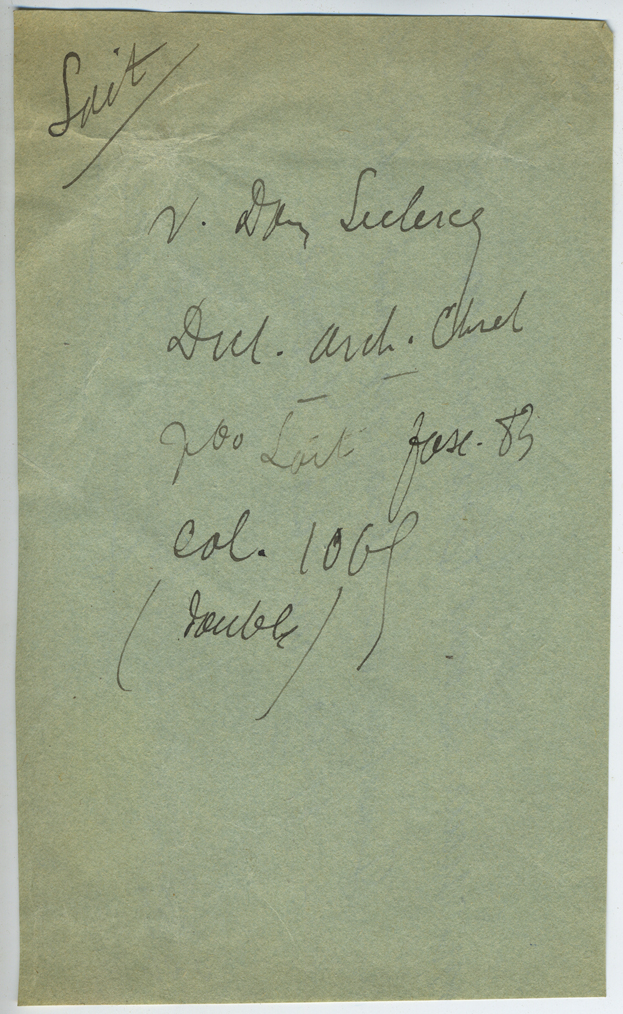 Lait
v. Dom Leclercq
Dict. arch. Chret
vbo Lait fasc. 83
col. 1069
(double)